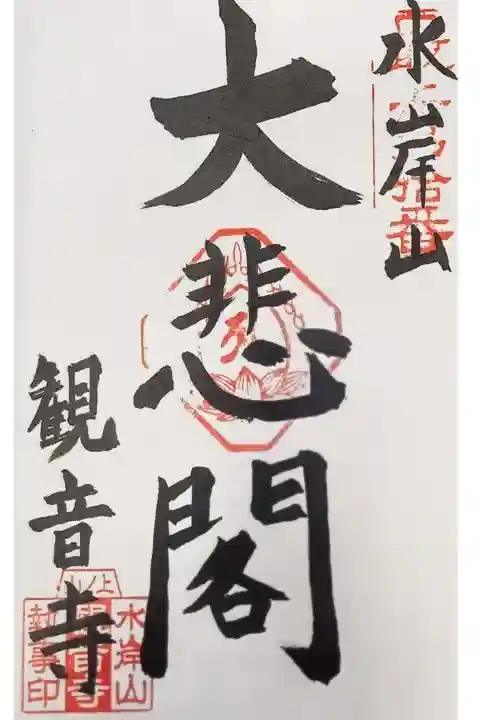 水岸山
大悲閣
観音寺
上ノ山
水岸山
観音寺
執事印